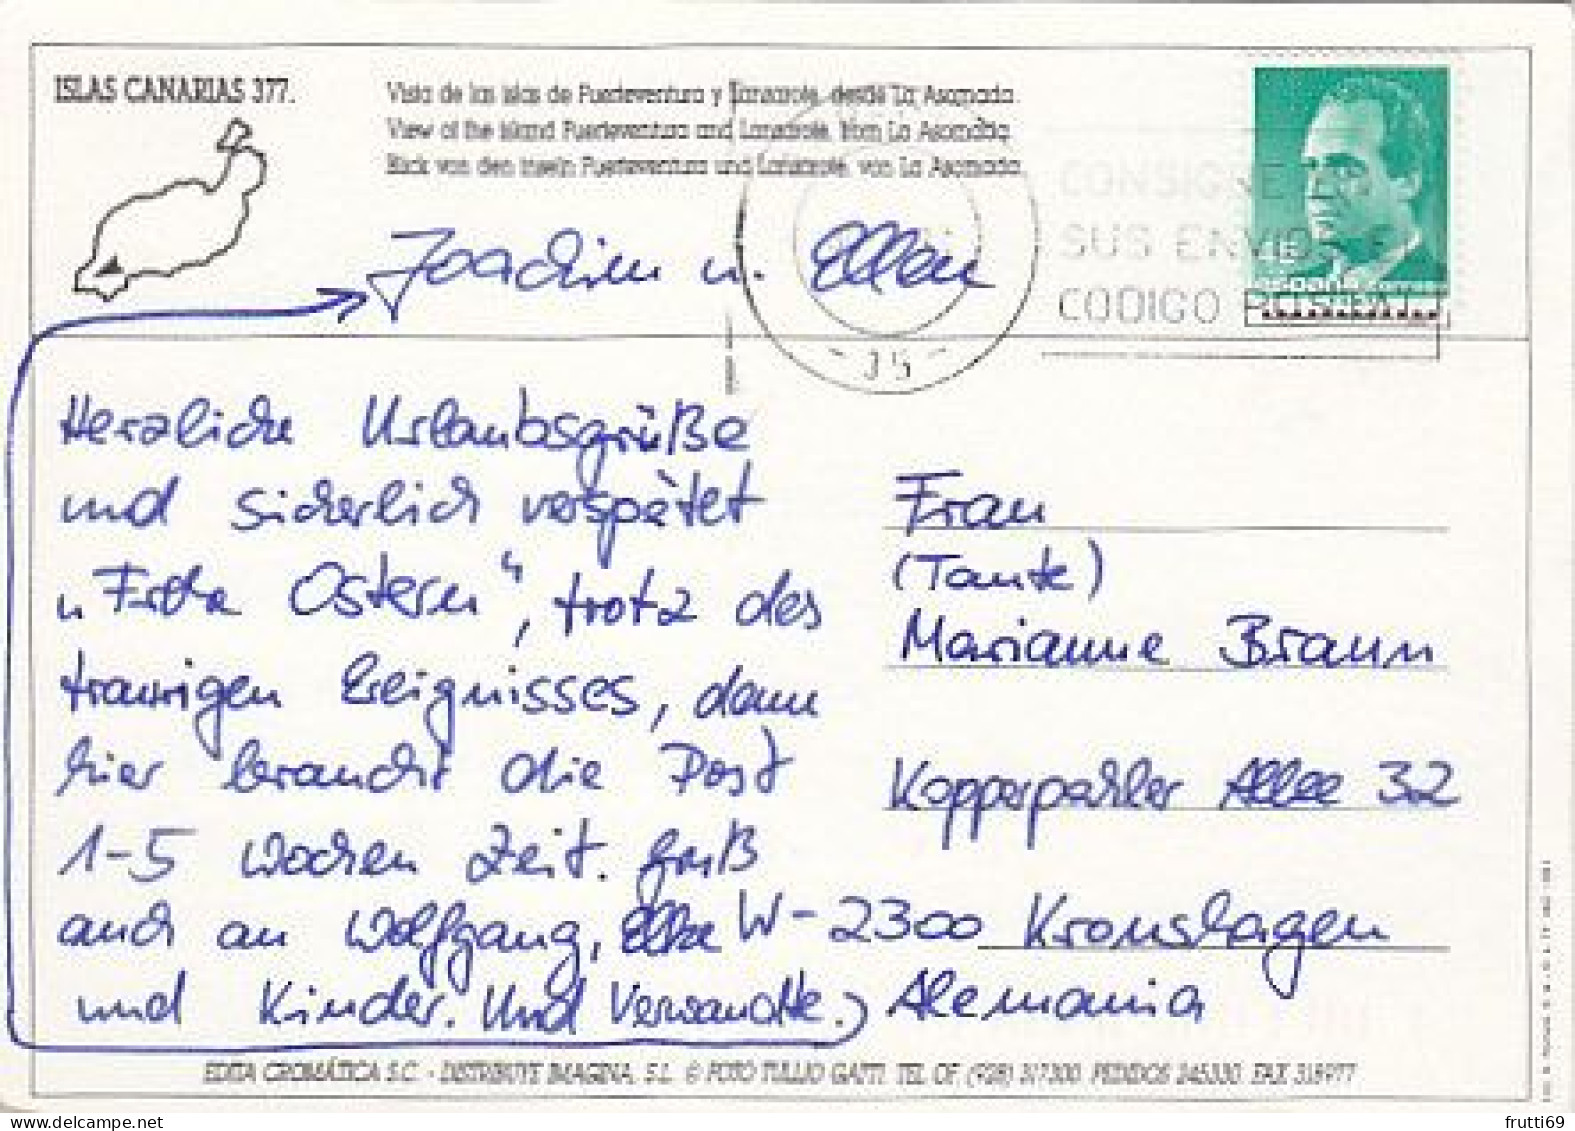 ISLAS CANARIAS 377.
Vista de las islas de Fuerteventura y Lanzarote, desde La Asomada
View of the island Fuerteventura and Lanzarote, from La Asomada
Blick von den Inseln Fuerteventura und Lanzarote, von La Asomada
CONSIGNE EN
SUS ENVIOS EL
CODIGO POSTAL
España
- 15 -
Joachim u. Ellen
Herzliche Urlaubsgrüße
und sicherlich verspätet
„Frohe Ostern“, trotz des
traurigen Ereignisses, denn
hier braucht die Post
1-5 Wochen Zeit. Gruß
auch an Wolfgang, Elke
und Kinder. Und Verwandte.)
Frau
(Tante)
Marianne Braun
Kopperpahler Allee 32
W-2300 Kronshagen
Alemania
EDITA CROMÁTICA S.C. - DISTRIBUYE IMAGINA, S.L. © FOTO TULLIO GATTI. TEL. OF. (928) 317300. PEDIDOS 245330. FAX 318977
frutti69